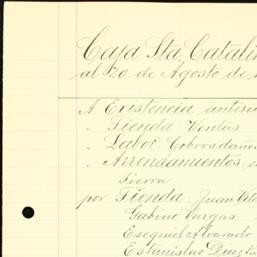 Caja Sta. Catalin
al 20. de Agosto de
A Existencia anteri
" Tienda Ventas
" Labor Cobros daños
" Arrendamientos
Sierra
por Tienda. Juan
Gabino Vargas
Esequiel Alvarado
Estanislao